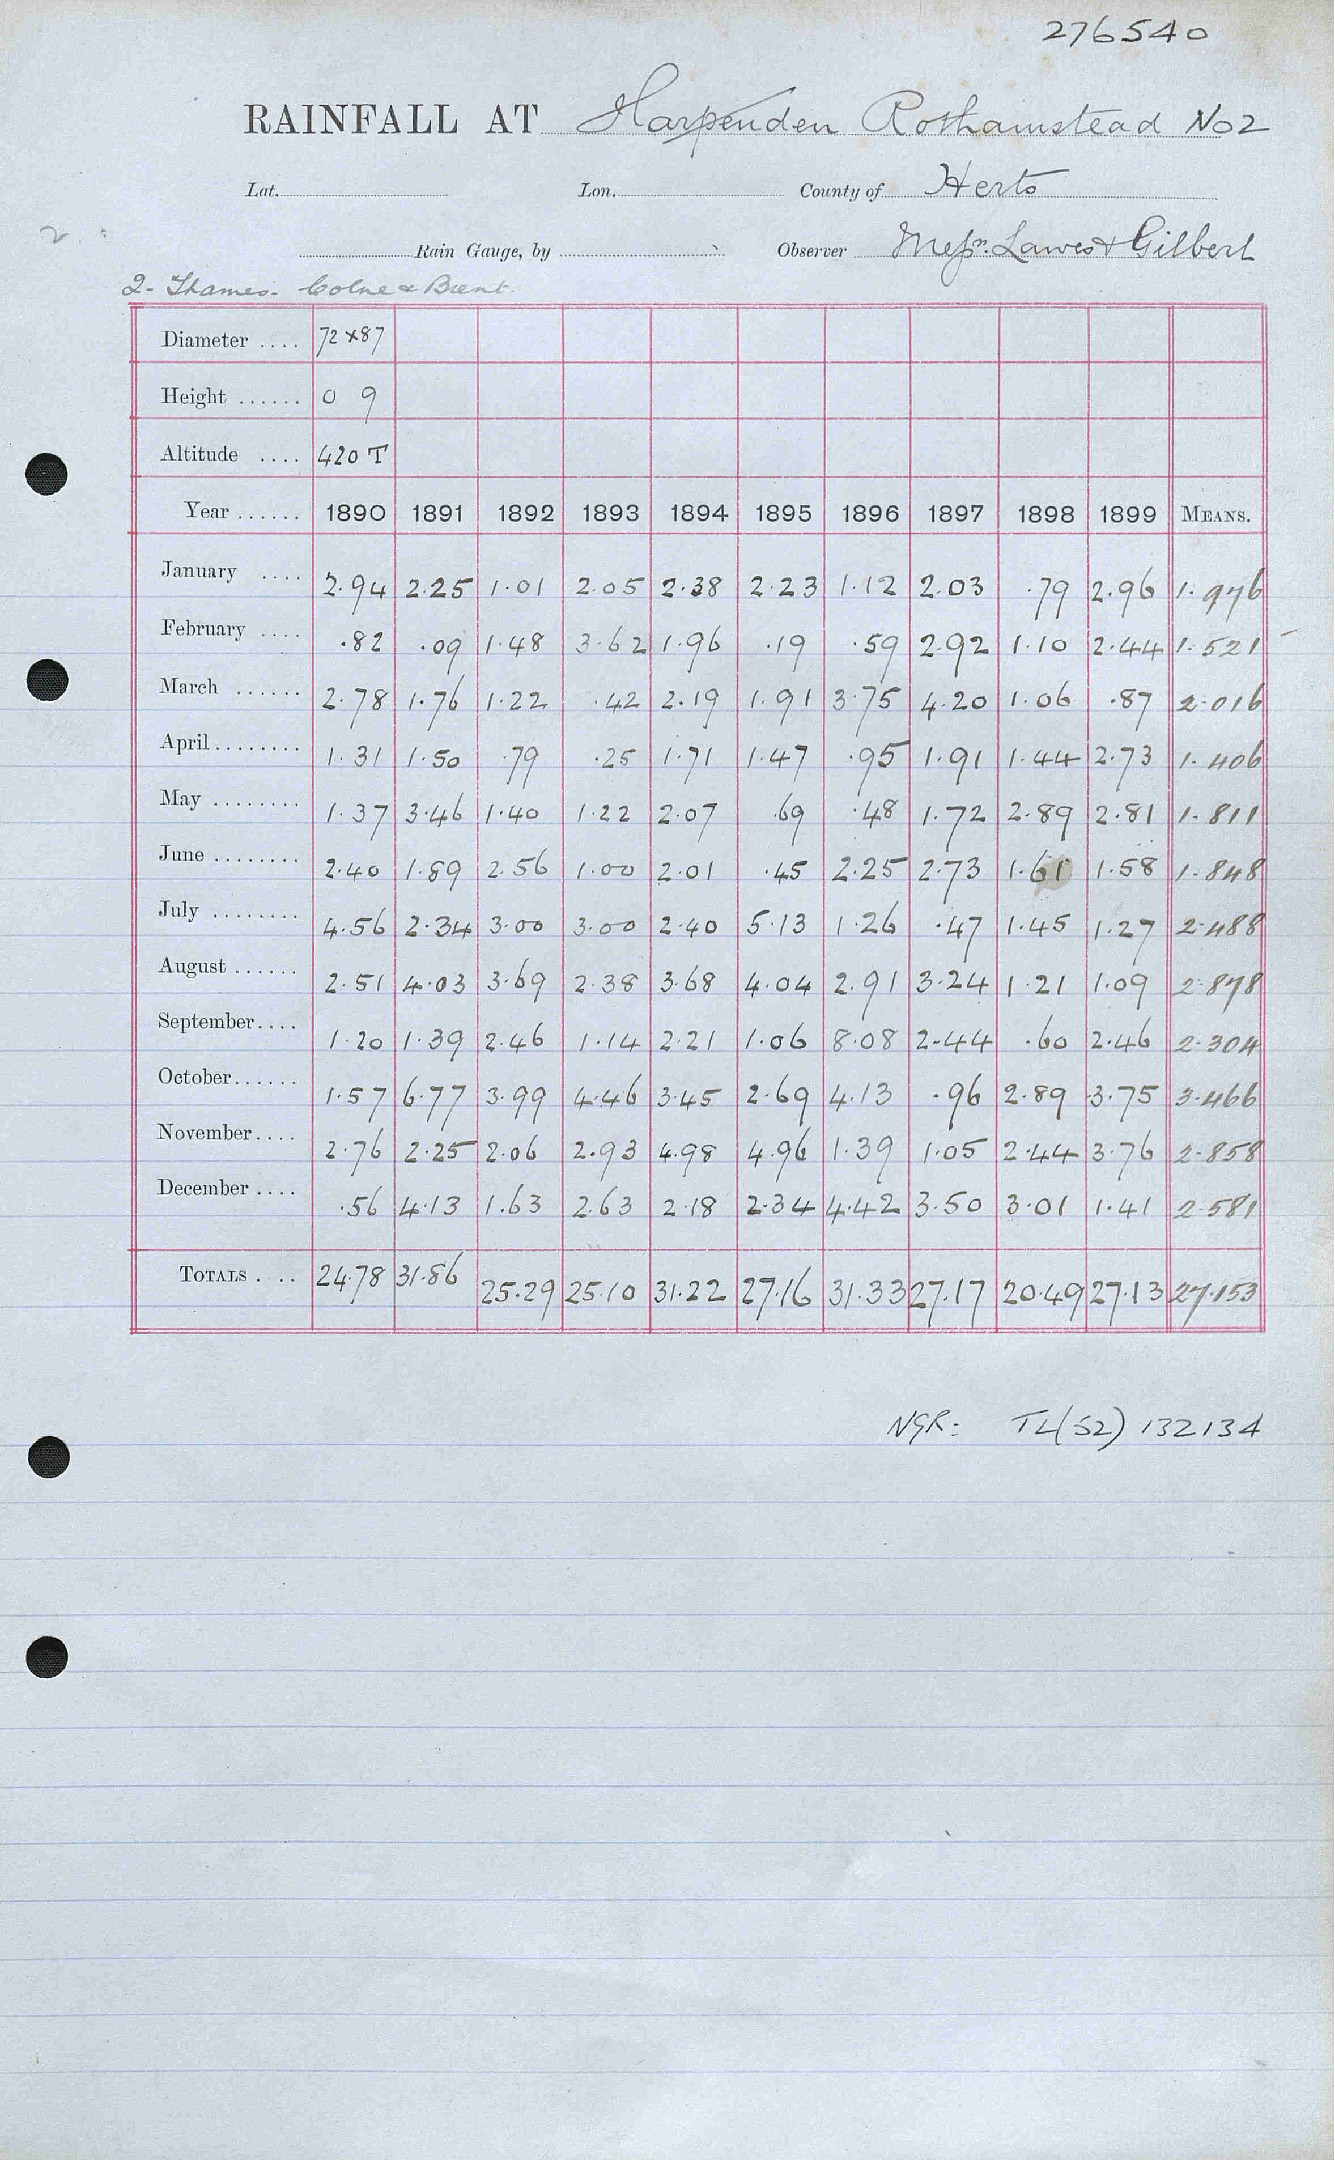 276540
RAINFALL AT Harpenden Rothamstead No 2
Lat. Lon. County of Herts
2
Rain Gauge, by Observer Messrs. Lawes & Gilbert
2- Thames- Colne & Brent.
Diameter .... 72 x 87
Height ...... 0 9
Altitude .... 420 T
Year ...... 1890 1891 1892 1893 1894 1895 1896 1897 1898 1899 MEANS.
January .... 2.94 2.25 1.01 2.05 2.38 2.23 1.12 2.03 .79 2.96 1.976
February .... .82 .09 1.48 3.62 1.96 .19 .59 2.92 1.10 2.44 1.521
March ...... 2.78 1.76 1.22 .42 2.19 1.91 3.75 4.20 1.06 .87 2.016
April ........ 1.31 1.50 .79 .25 1.71 1.47 .95 1.91 1.44 2.73 1.406
May ........ 1.37 3.46 1.40 1.22 2.07 .69 .48 1.72 2.89 2.81 1.811
June ........ 2.40 1.89 2.56 1.00 2.01 .45 2.25 2.73 1.61 1.58 1.848
July ........ 4.56 2.34 3.00 3.00 2.40 5.13 1.26 .47 1.45 1.27 2.488
August ...... 2.51 4.03 3.69 2.38 3.68 4.04 2.91 3.24 1.21 1.09 2.878
September.... 1.20 1.39 2.46 1.14 2.21 1.06 8.08 2.44 .60 2.46 2.304
October...... 1.57 6.77 3.99 4.46 3.45 2.69 4.13 .96 2.89 3.75 3.466
November.... 2.76 2.25 2.06 2.93 4.98 4.96 1.39 1.05 2.44 3.76 2.858
December .... .56 4.13 1.63 2.63 2.18 2.34 4.42 3.50 3.01 1.41 2.581
TOTALS .... 24.78 31.86 25.29 25.10 31.22 27.16 31.33 27.17 20.49 27.13 27.153
NGR: TL(52) 132134